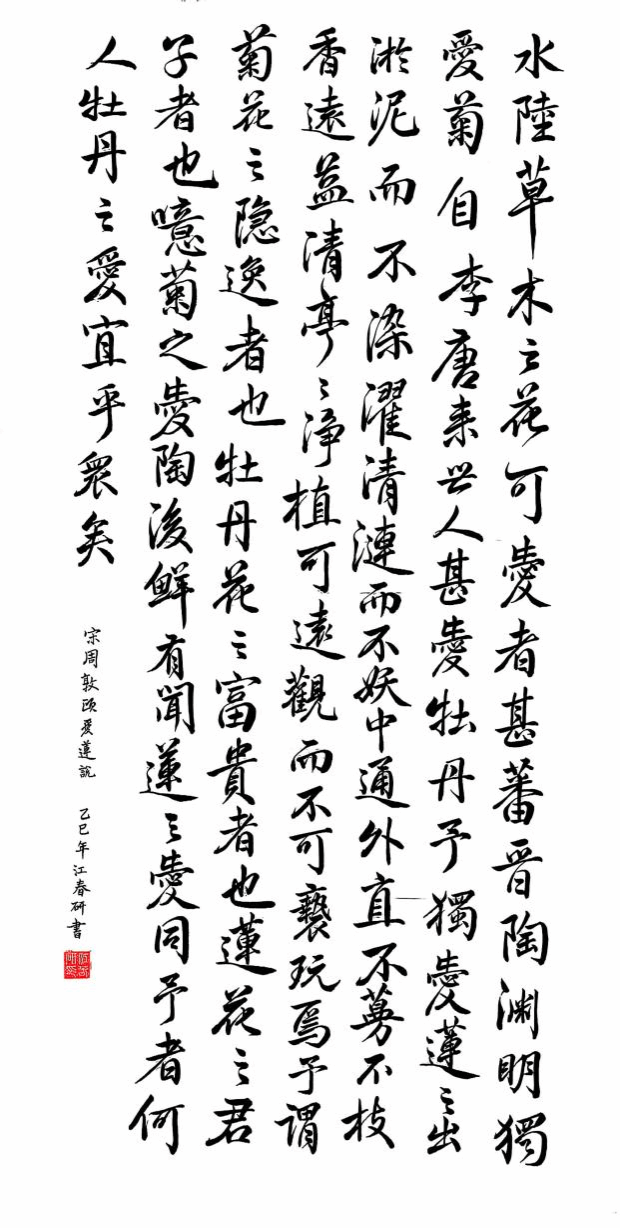 水陸草木之花可愛者甚蕃晋陶渊明獨
愛菊自李唐来世人甚愛牡丹予獨愛蓮之出
淤泥而不染濯清漣而不妖中通外直不蔓不枝
香遠益清亭〻浄植可遠觀而不可褻玩焉予謂
菊花之隐逸者也牡丹花之富貴者也蓮花之君
子者也噫菊之愛陶後鮮有聞蓮之愛同予者何
人牡丹之愛宜乎衆矣
宋周敦颐愛蓮說 乙巳年江春研書